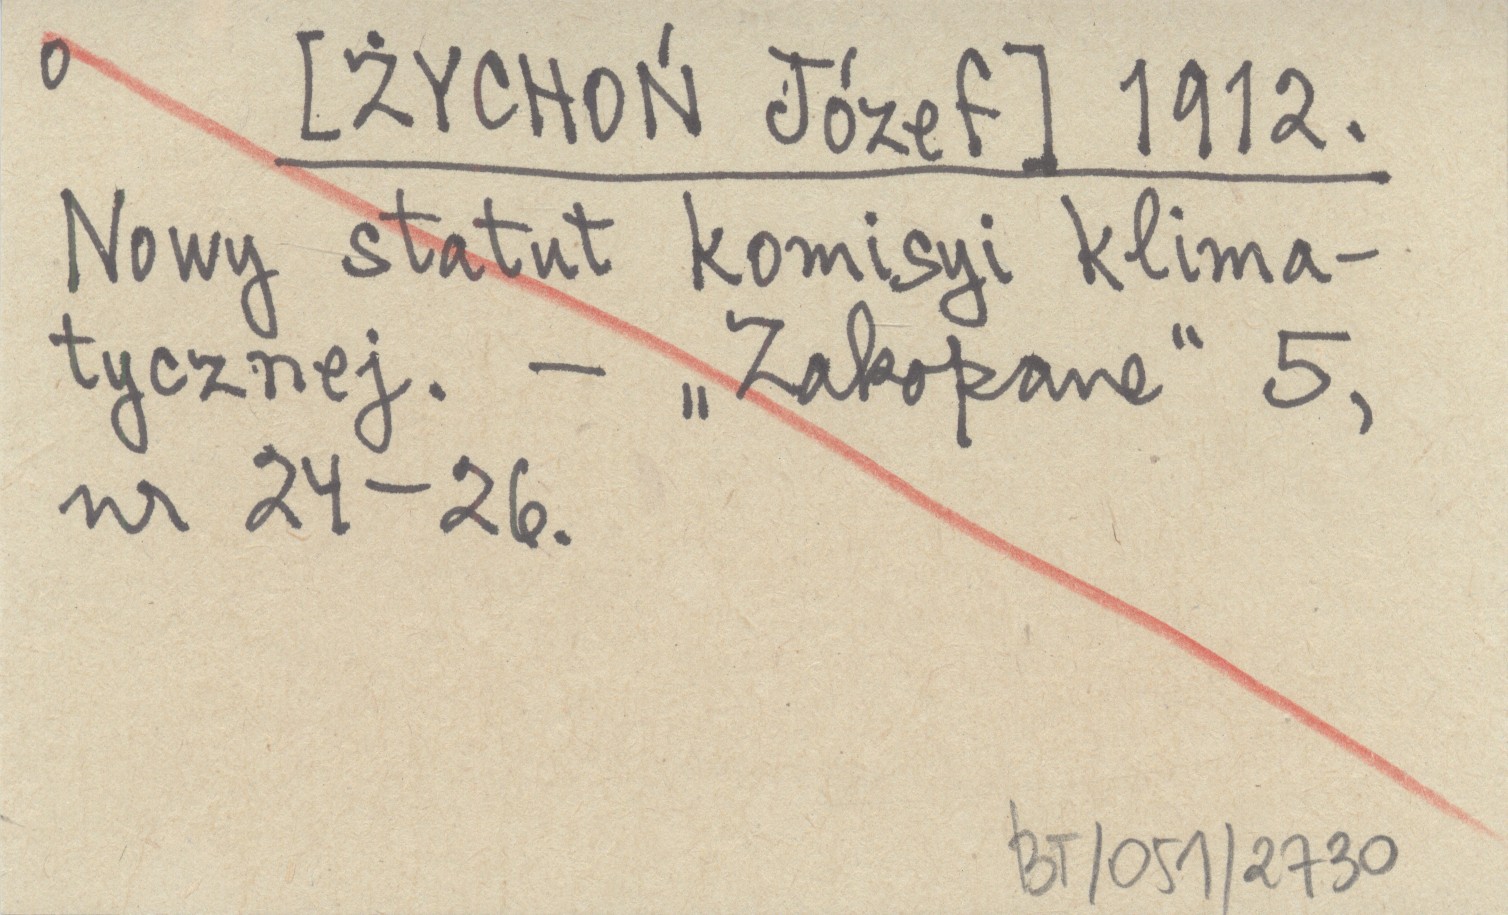 o [ŻYCHOŃ Józef] 1912.
Nowy statut komisyi klima-
tycznej. – „Zakopane" 5,
nr 24–26.
BT/051/2730